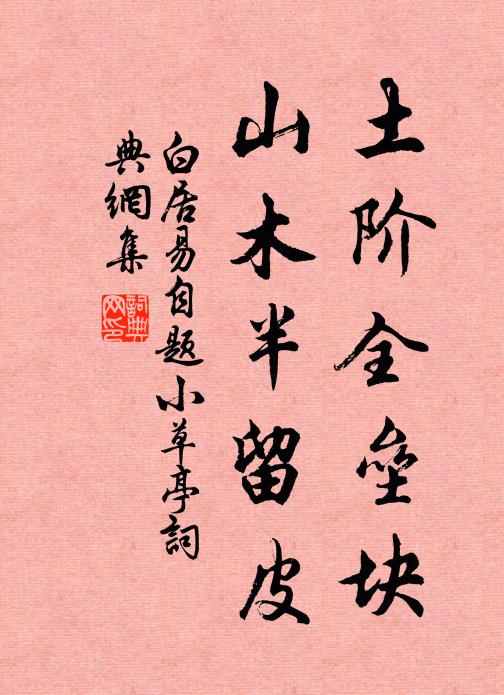 土阶全垒块
山木半留皮
白居易自题小草亭詞
典網集
詞典网印